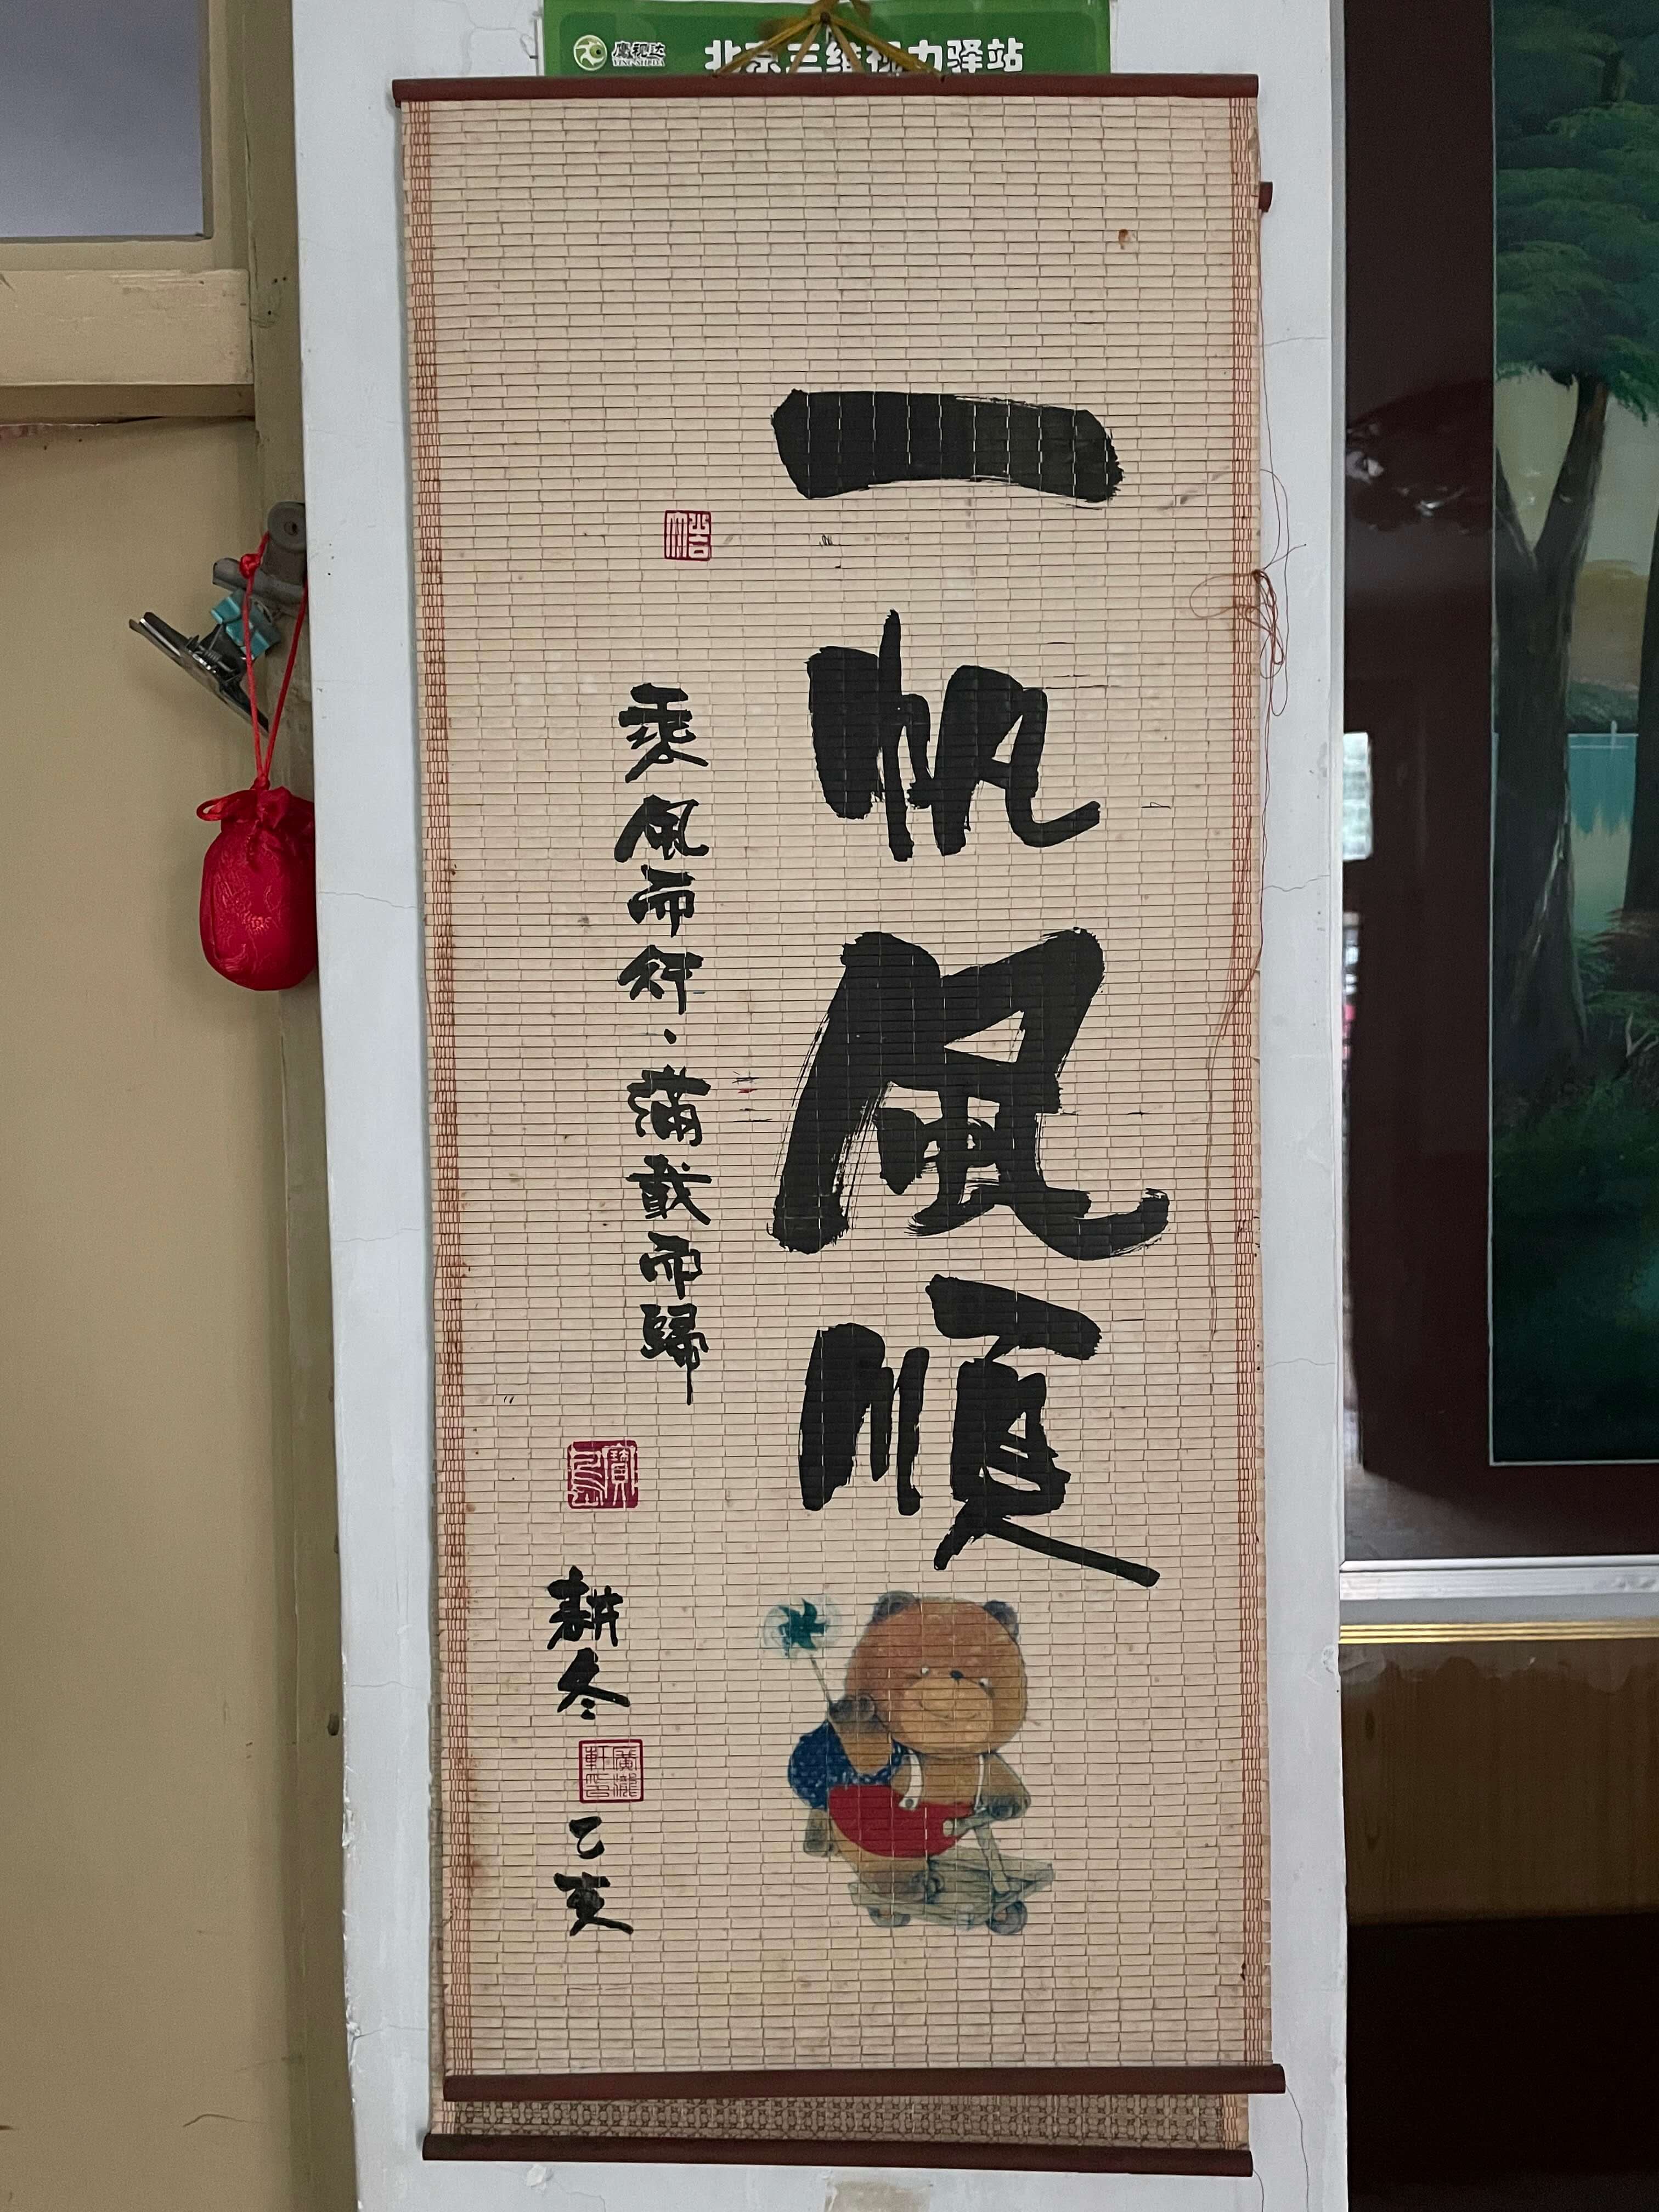 鹰视达
YINGSHIDA
北京三维视力驿站
一帆風順
乘風而行·滿載而歸
耕冬
乙亥